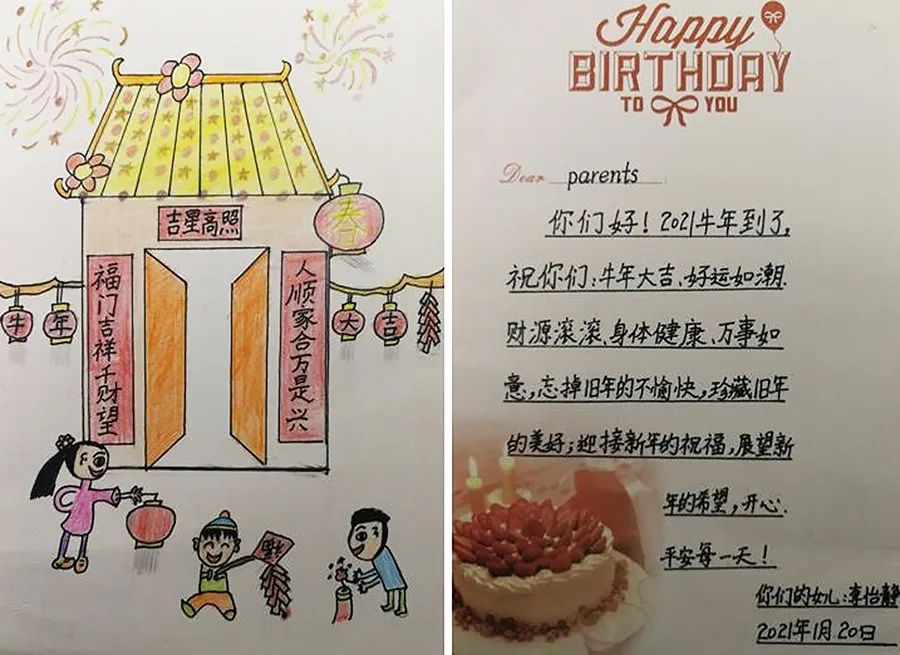 吉星高照
春
福门吉祥千财望
人顺家合万是兴
牛年
大吉
Happy
BIRTHDAY
TO YOU
Dear parents
你们好！2021牛年到了,
祝你们:牛年大吉、好运如潮.
财源滚滚、身体健康、万事如
意,忘掉旧年的不愉快,珍藏旧年
的美好;迎接新年的祝福,展望新
年的希望,开心.
平安每一天！
你们的女儿:李怡静
2021年1月20日